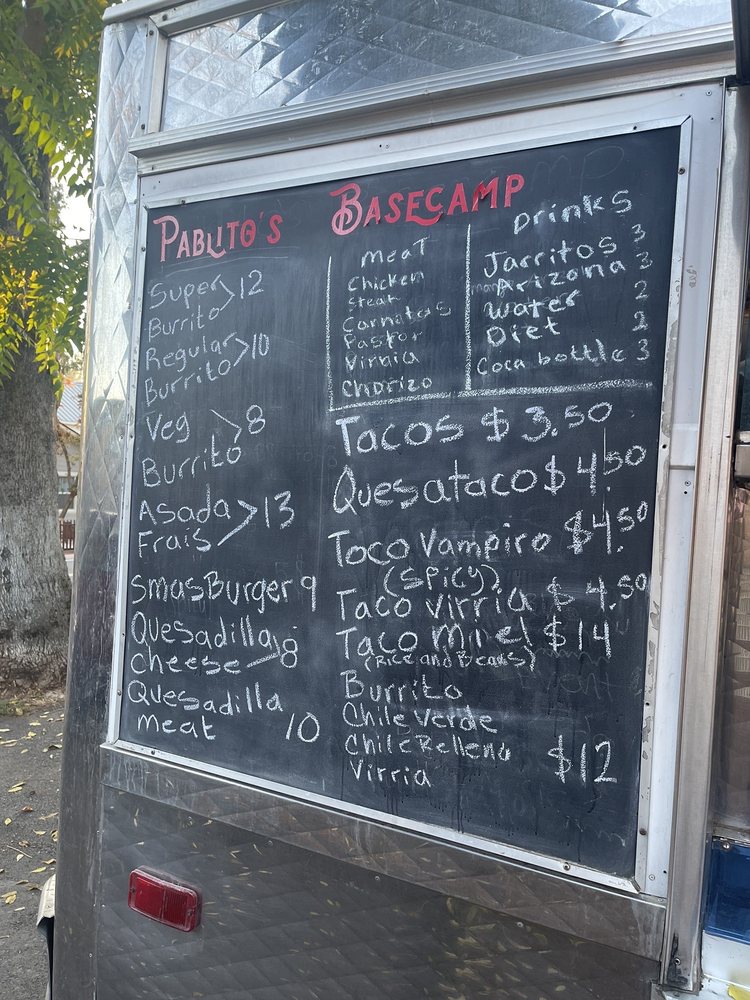 PABLITO'S BASECAMP
Super
Burrito > 12
Regular
Burrito > 10
Veg
Burrito > 8
Asada
Frais > 13
SmasBurger 9
Quesadilla
Cheese 8
Quesadilla
meat 10
meat
Chicken
Steak
Carnitas
Pastor
Virria
Chorizo
Drinks
Jarritos 3
Arizona 3
Water 2
Diet 2
Coca bottle 3
Tacos $3.50
Quesataco $4.50
Toco Vampiro $4.50
(Spicy)
Taco virria $4.50
Taco minel $14
(Rice and Beans)
Burrito
Chile verde
Chile Relleno $12
Virria